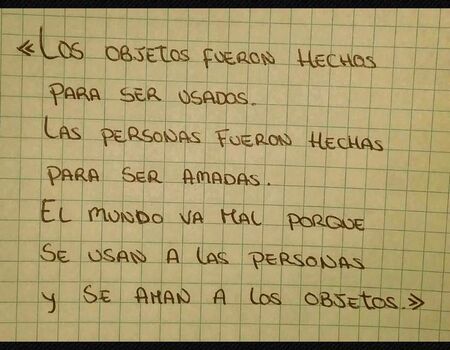 «Los objetos fueron hechos
para ser usados.
Las personas fueron hechas
para ser amadas.
El mundo va mal porque
se usan a las personas
y se aman a los objetos.»